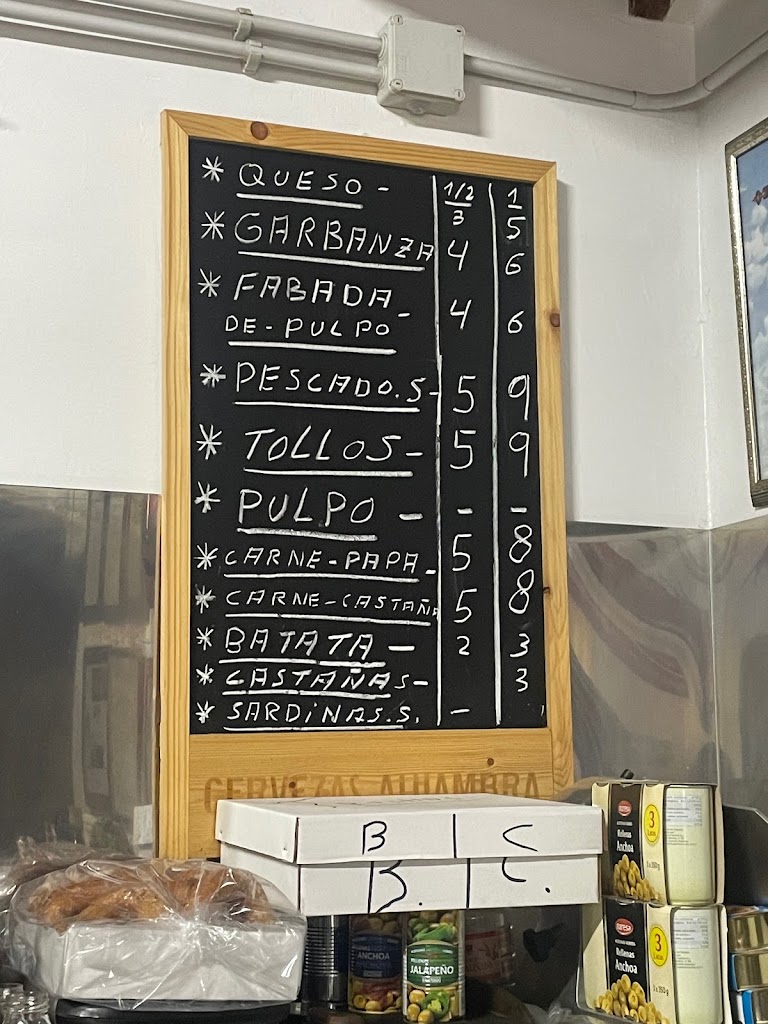 * QUESO - 1/2 1
3 5
* GARBANZA 4 6
* FABADA
DE-PULPO - 4 6
* PESCADO.S- 5 9
* TOLLOS- 5 9
* PULPO - - -
* CARNE-PAPA- 5 8
* CARNE-CASTAÑA 5 8
* BATATA - 2 3
* CASTAÑAS- 3
* SARDINAS.S. -
CERVEZAS ALHAMBRA
B C
B. C.
3
Rellenas
Anchoa
3
Rellenas
Anchoa
ANCHOA
JALAPEÑO